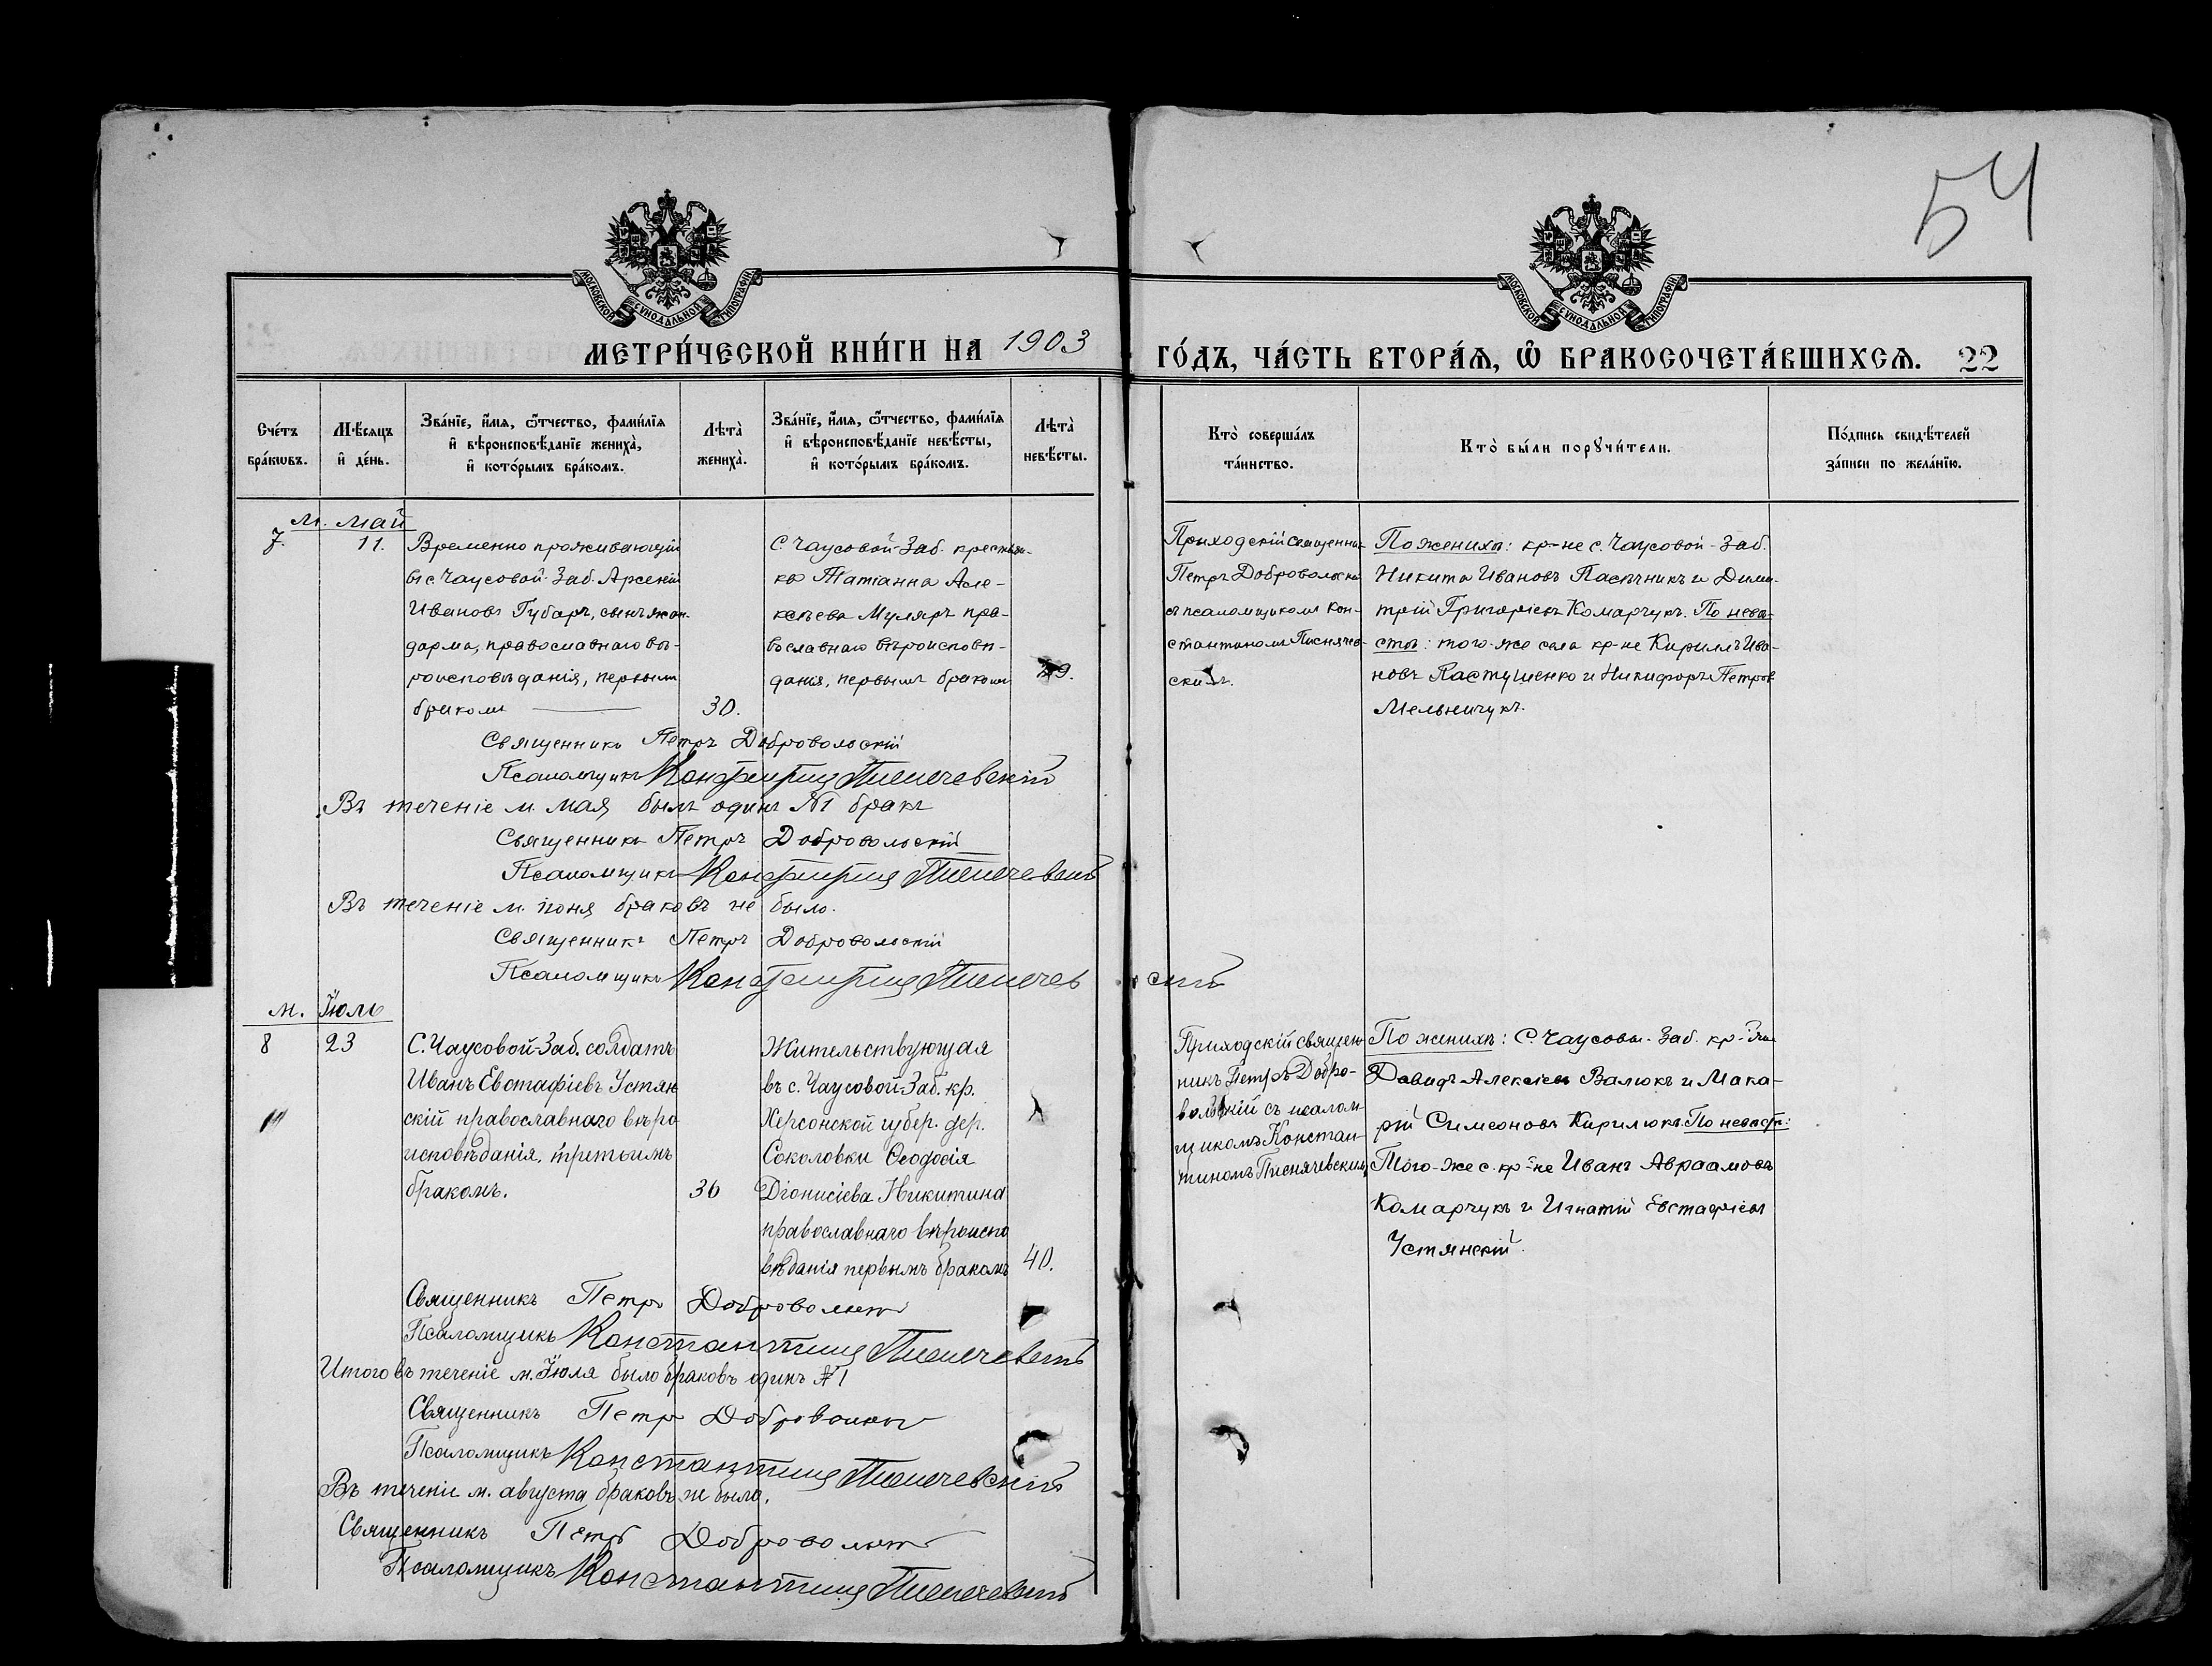 54
МОСКОВСКОЙ СУНОДАЛЬНОЙ ТИПОГРАФІИ
МОСКОВСКОЙ СУНОДАЛЬНОЙ ТИПОГРАФІИ
МЕТРИ́ЧЕСКОЙ КНИ́ГИ НА 1903
ГО́ДЪ, ЧА́СТЬ ВТОРА́Я, Ѡ БРАКОСОЧЕТА́ВШИХСЯ. 22
Сче́тъ
бра́кѡвъ.
Мѣ́сяцъ
и де́нь.
Зва́нїе, и́мя, ѻ҆́тчество, фами́лїя
и вѣроисповѣ́данїе жениха̀,
и кото́рымъ бра́комъ.
Лѣта̀
жениха̀.
Зва́нїе, и́мя, ѻ҆́тчество, фами́лїя
и вѣроисповѣ́данїе невѣ́сты,
и кото́рымъ бра́комъ.
Лѣта̀
невѣ́сты.
Кто̀ соверша́лъ
та́инство.
Кто̀ бы́ли порꙋчи́тели.
По́дпись свидѣ́телей
за́писи по жела́нїю.
м. май
7.
11.
Временно проживающій
въ с. Чаусовой-Заб. Арсеній
Ивановъ Губарь, сынъ жан-
дарма, православнаго вѣ-
роисповѣданія, первымъ
бракомъ
30.
С. Чаусовой-Заб. крестьян-
ка Татіанна Але-
ксѣева Муляръ пра-
вославнаго вѣроисповѣ-
данія, первымъ бракомъ
9.
Приходскій священникъ
Петръ Добровольскій
съ псаломщикомъ Кон-
стантиномъ Писнячев-
скимъ.
По женихѣ: кр-не с. Чаусовой-Заб.
Никита Ивановъ Пасѣчникъ и Дими-
трій Григоріевъ Комарчукъ. По невѣ-
стѣ: того-же села кр-не Кириллъ Ива-
новъ Растушенко и Никифоръ Петровъ
Мельничукъ.
Священникъ Петръ Добровольскій
Псаломщикъ Константинъ Писнячевскій
Въ теченіе м. мая былъ одинъ №1 бракъ
Священникъ Петръ Добровольскій
Псаломщикъ Константинъ Писнячевскій
Въ теченіе м. іюня браковъ не было.
Священникъ Петръ Добровольскій
Псаломщикъ Константинъ Писнячевскій
м. Іюль
8
23
С. Чаусовой-Заб. солдатъ
Иванъ Евстафіевъ Устян
скій православнаго вѣро
исповѣданія, третьимъ
бракомъ.
36
Жительствующая
въ с. Чаусовой-Заб. кр.
Херсонской губер. дер.
Соколовки Ѳеодосія
Діонисіева Никитина
православнаго вѣроиспо
вѣданія первымъ бракомъ
40.
Приходскій священ
никъ Петръ Добро-
вольскій съ псалом
щикомъ Констан-
тиномъ Писнячевскимъ
По женихѣ: С. Чаусовы-Заб. кр-не
Давидъ Алексіевъ Валюкъ и Мака-
рій Симеоновъ Кирилюкъ. По невѣстѣ:
Того-же с. кр-не Иванъ Авраамовъ
Комарчукъ и Игнатій Евстафіевъ
Устянскій.
Священникъ Петръ Добровольскій
Псаломщикъ Константинъ Писнячевскій
Итого въ теченіе м. Іюля было браковъ одинъ №1
Священникъ Петръ Добровольскій
Псаломщикъ Константинъ Писнячевскій
Въ теченіе м. августа браковъ не было.
Священникъ Петръ Добровольскій
Псаломщикъ Константинъ Писнячевскій